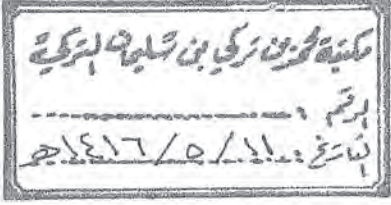 مكتبة محمد بن تركي بن سليمان التركي
الرقم :
التاريخ : ١١ / ٥ / ١٤١٦هـ